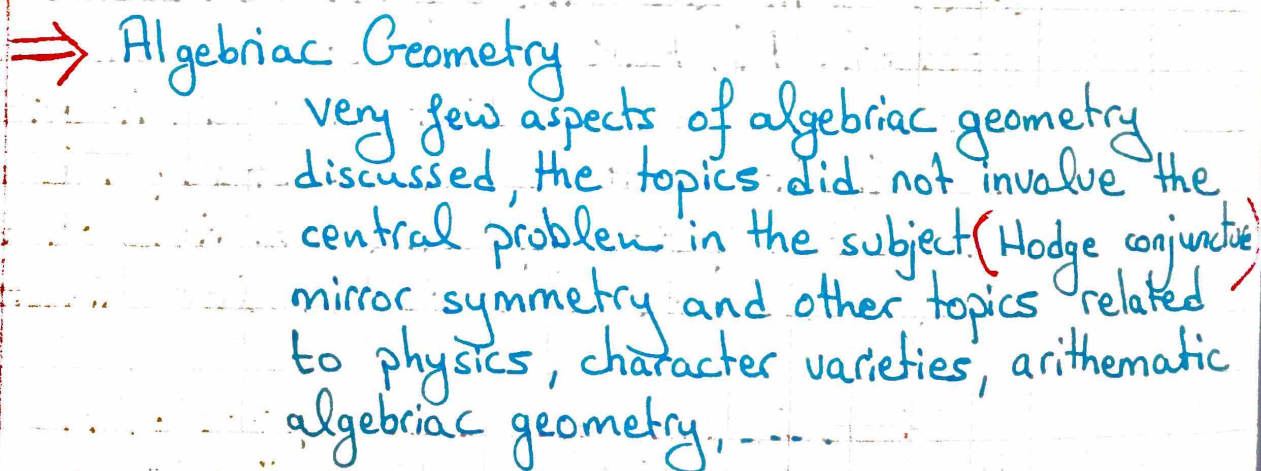 ⇒ Algebriac Geometry
very few aspects of algebriac geometry
discussed, the topics did not involve the
central problem in the subject (Hodge conjunctue)
mirror symmetry and other topics related
to physics, character varieties, arithematic
algebriac geometry, -----